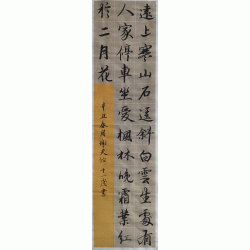 遠上寒山石逕斜白雲生處有
人家停車坐愛楓林晚霜葉紅
於二月花
辛丑春月天十一歲書